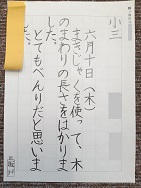 小三
六月十日(木)
まきじゃくを使って、木
のまわりの長さをはかりま
した。
とてもべんりだと思いま